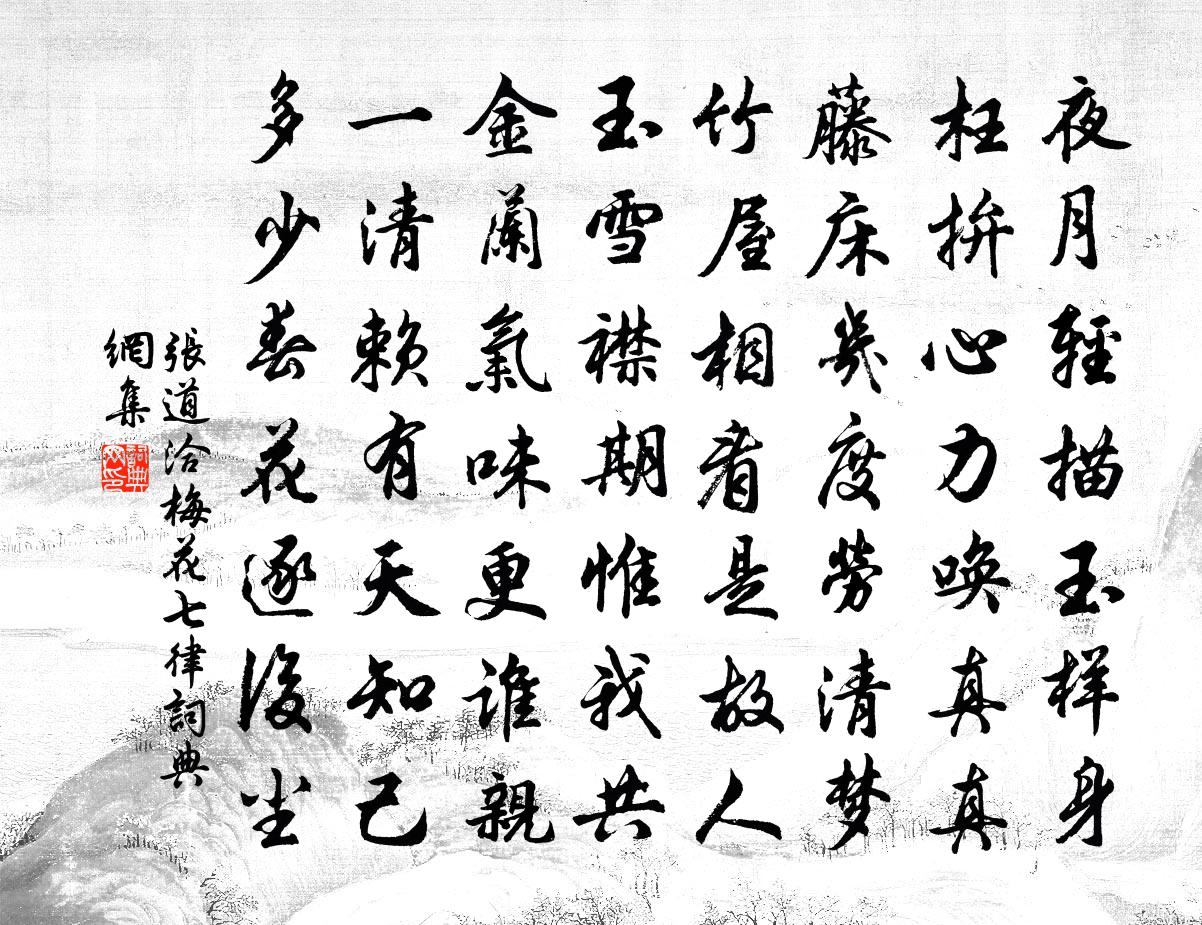 夜月輕描玉样身
枉拚心力唤真真
藤床幾度勞清梦
竹屋相看是故人
玉雪襟期惟我共
金蘭氣味更谁親
一清赖有天知己
多少春花逐後尘
張道洽梅花七律詞典
網集
詞典
网印